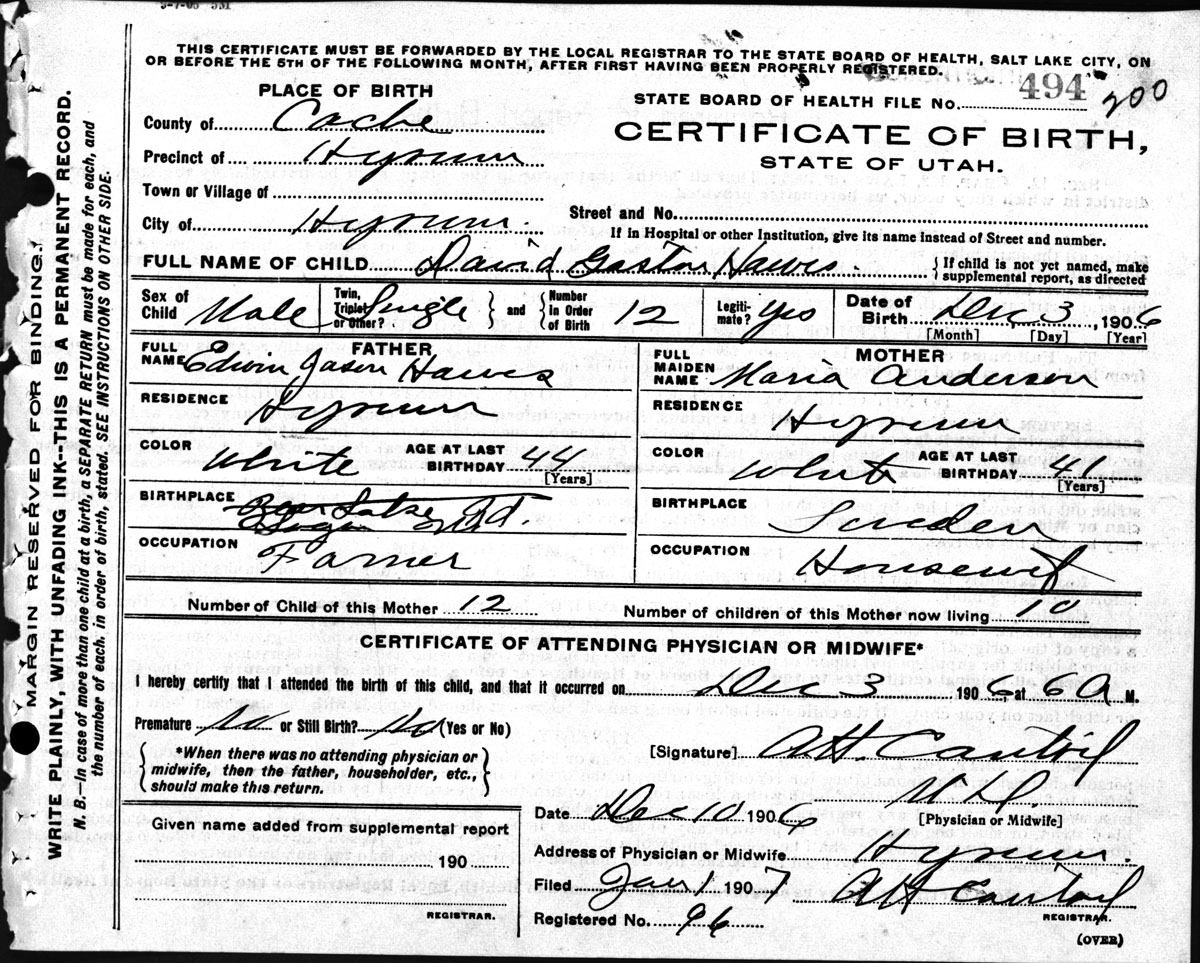 THIS CERTIFICATE MUST BE FORWARDED BY THE LOCAL REGISTRAR TO THE STATE BOARD OF HEALTH, SALT LAKE CITY, ON
OR BEFORE THE 5TH OF THE FOLLOWING MONTH, AFTER FIRST HAVING BEEN PROPERLY REGISTERED.
PLACE OF BIRTH
STATE BOARD OF HEALTH FILE No. 494 200
County of Cache
CERTIFICATE OF BIRTH,
Precinct of Hyrum
STATE OF UTAH.
Town or Village of
City of Hyrum. Street and No.
If in Hospital or other Institution, give its name instead of Street and number.
FULL NAME OF CHILD David Gaston Hawes. { If child is not yet named, make
supplemental report, as directed
Sex of Child Male Twin, Triplet or Other? Single } and { Number in Order of Birth 12 Legiti-mate? Yes Date of Birth Dec 3, 1906
[Month] [Day] [Year]
FATHER MOTHER
FULL NAME Edwin Jason Hawes FULL MAIDEN NAME Maria Anderson
RESIDENCE Hyrum RESIDENCE Hyrum
COLOR White AGE AT LAST BIRTHDAY 44 [Years] COLOR White AGE AT LAST BIRTHDAY 41 [Years]
BIRTHPLACE Bear Lake Id. BIRTHPLACE Sweden
OCCUPATION Farmer OCCUPATION Housewif
Number of Child of this Mother 12 Number of children of this Mother now living 10
CERTIFICATE OF ATTENDING PHYSICIAN OR MIDWIFE*
I hereby certify that I attended the birth of this child, and that it occurred on Dec 3 1906 at 6 A M.
Premature No or Still Birth? No (Yes or No)
{ *When there was no attending physician or
midwife, then the father, householder, etc.,
should make this return. }
[Signature] AH. Cantril
M D.
[Physician or Midwife]
Date Dec 10 1906
Given name added from supplemental report
190
REGISTRAR.
Address of Physician or Midwife Hyrum.
Filed Jan 1 1907 AH Cantril
REGISTRAR.
Registered No. 96
(OVER)
MARGIN RESERVED FOR BINDING.
WRITE PLAINLY, WITH UNFADING INK--THIS IS A PERMANENT RECORD.
N. B.—In case of more than one child at a birth, a SEPARATE RETURN must be made for each, and
the number of each, in order of birth, stated. SEE INSTRUCTIONS ON OTHER SIDE.